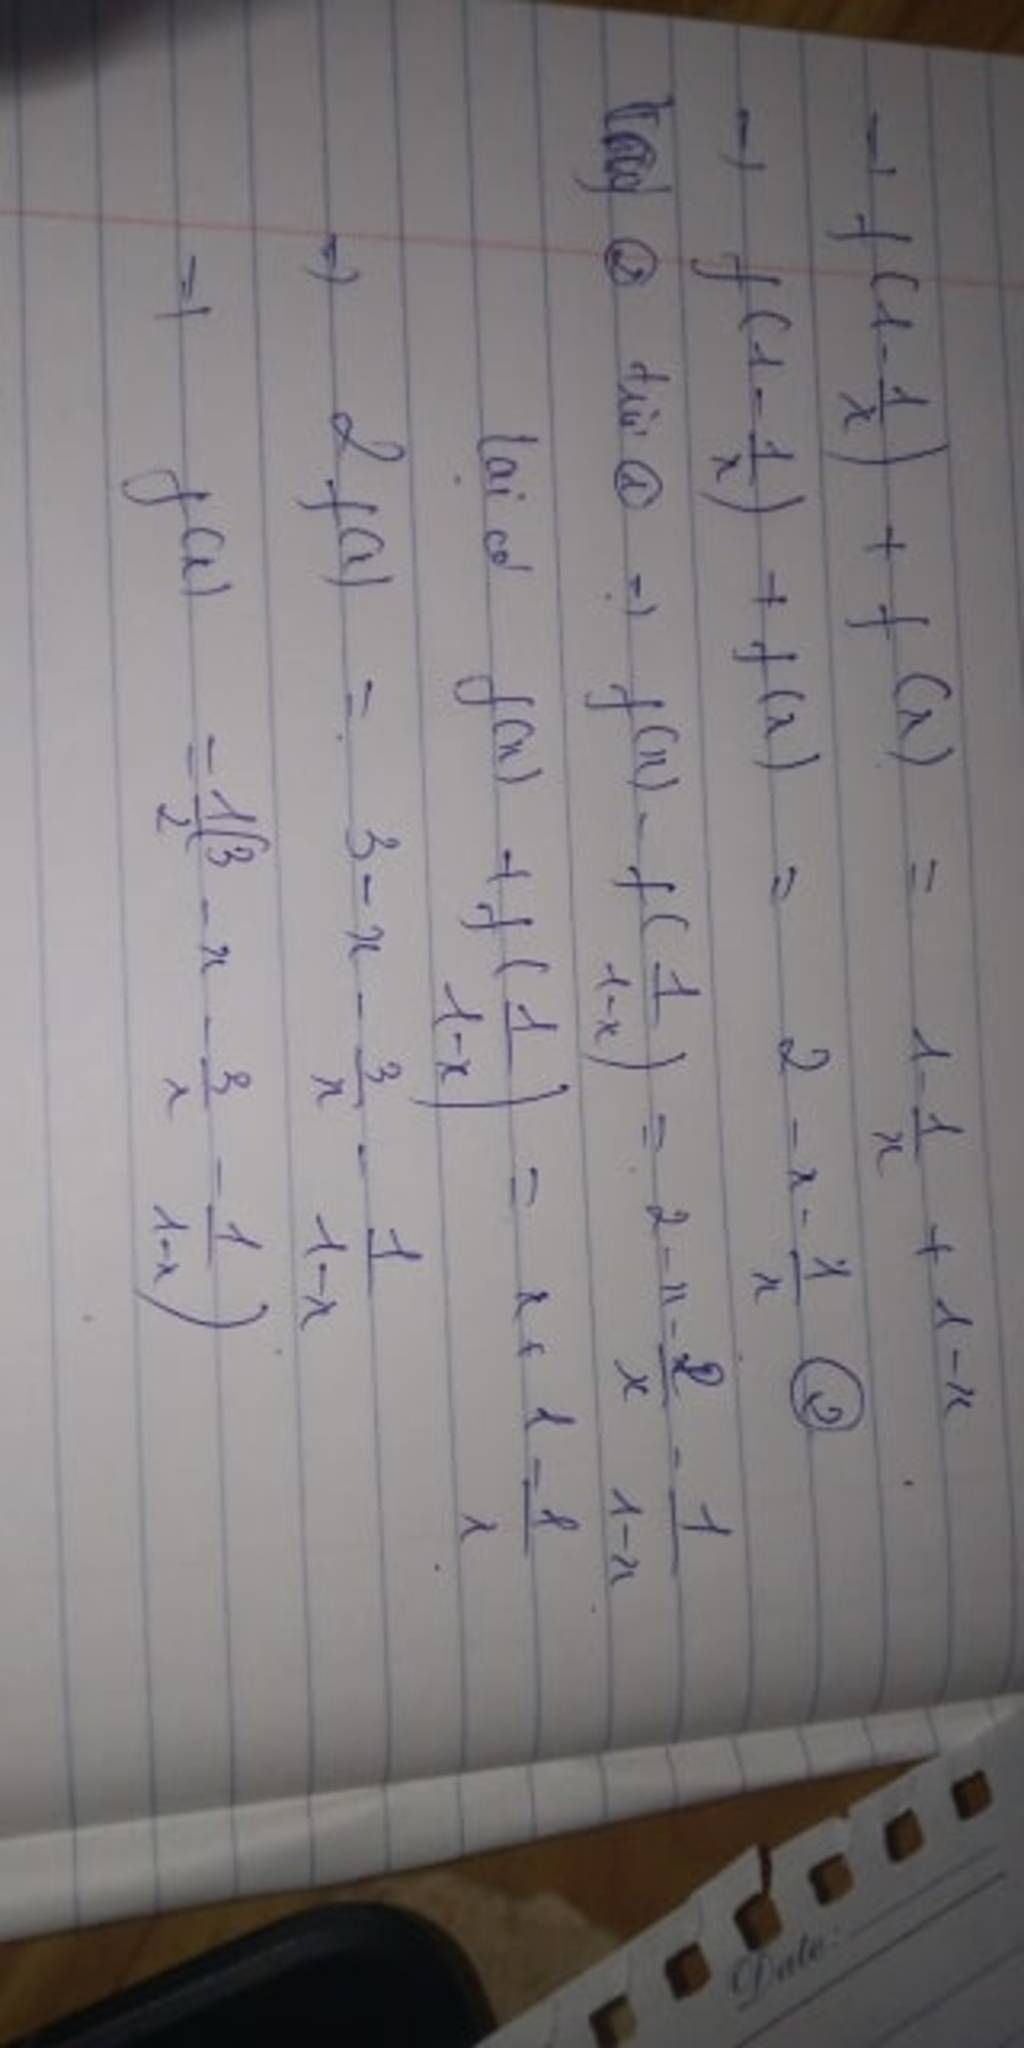 → f(1 - 1/x) + f(x) = 1 - 1/x + 1 - x
→ f(1 - 1/x) + f(x) = 2 - x - 1/x ②
② trừ ① → f(x) - f(1/(1-x)) = 2 - x - 2/x - 1/(1-x)
lại có f(x) + f(1/(1-x)) = x + 1 - 1/x
→ 2f(x) = 3 - x - 3/x - 1/(1-x)
→ f(x) = 1/2(3 - x - 3/x - 1/(1-x))
Date: